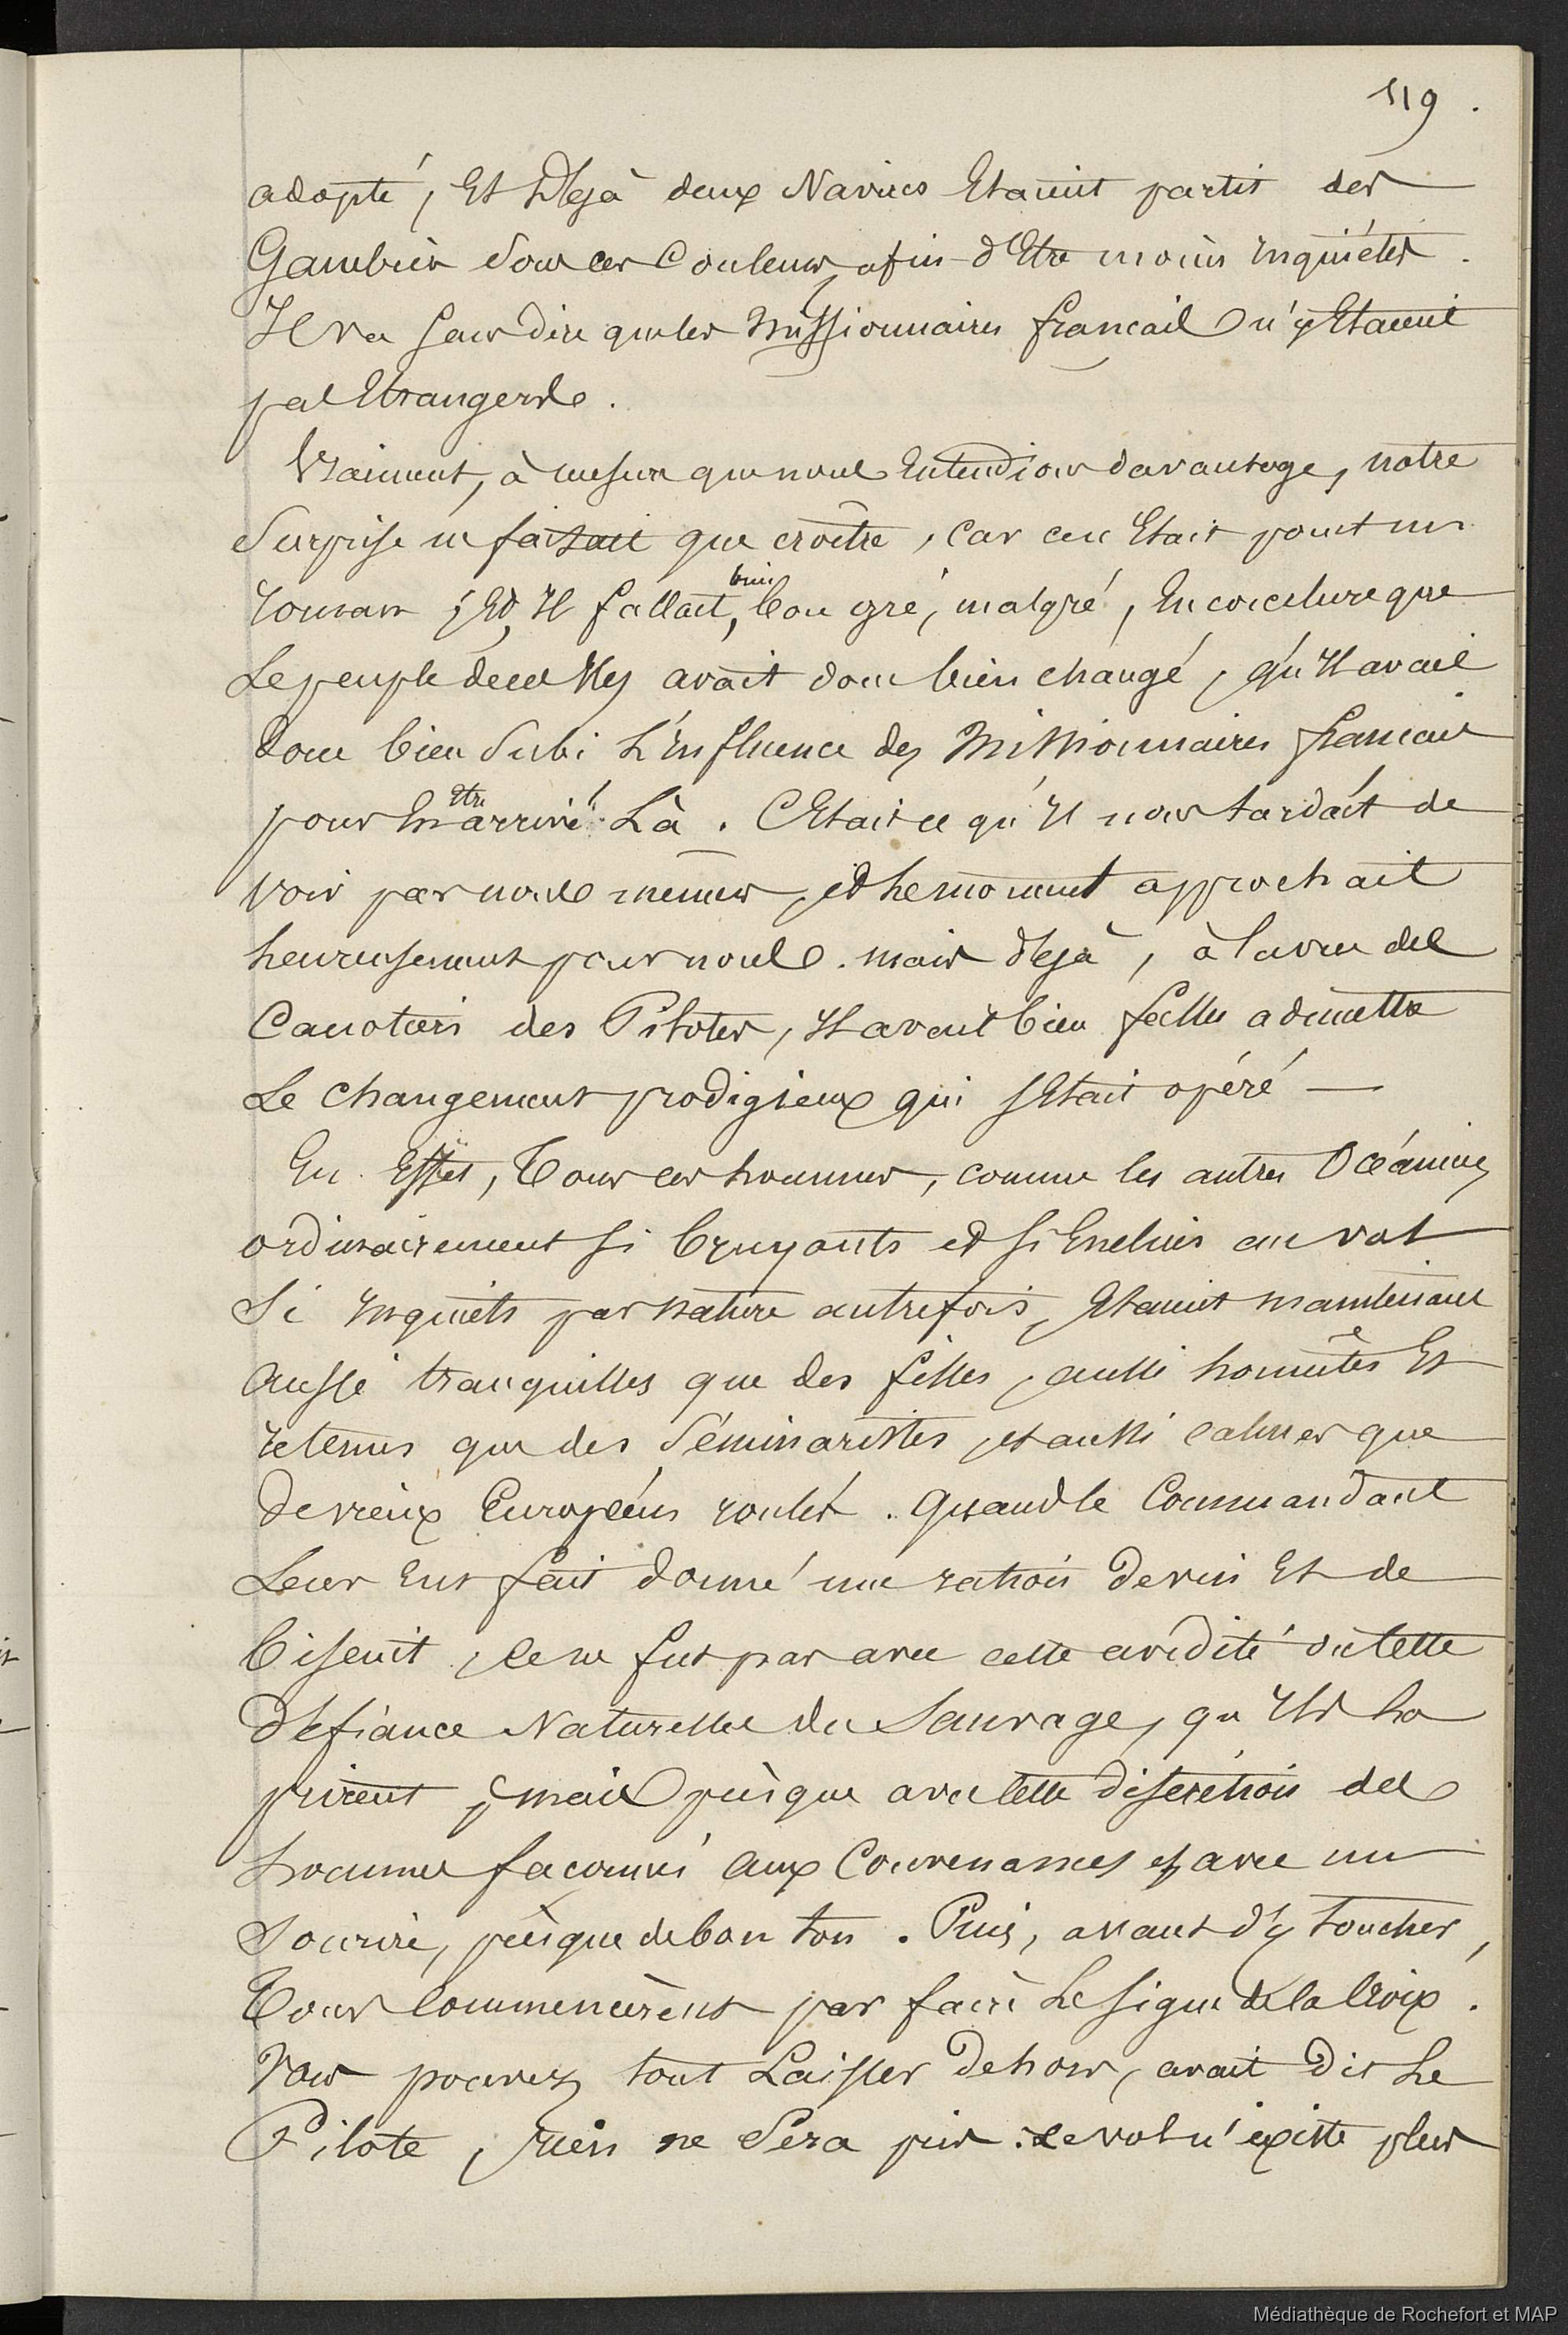 519.
adopté, Et Déjà deux Navires Etaient partis des
Gambier sous ces Couleurs, afin d'Etre moins Inquiétés.
Il va sans dire que les Missionnaires francais n'y Etaient
pas Etrangers.
Vraiment, à mesure que nous Entendions davantage, notre
Surprise ne faisait que croître, car ce n'Etait point un
roman ; Et, Il fallait, bien bon gré, malgré, En conclure que
Le peuple de ces Iles avait donc bien changé, qu'Il avait
donc bien Subi L'Influence des Missionnaires francais
pour En Etre arrivé Là. C'Etait ce qu'Il nous tardait de
voir par nous mêmes, et Le moment approchait
heureusement pour nous. mais déjà, à la vue des
Canotiers des Pilotes, Il avait bien fallu admettre
Le changement prodigieux qui s'Etait opéré —
En Effet, Tous ces hommes, comme les autres Océaniens
ordinairement si bruyants et si Enclins au vol
Si Inquiets par nature autrefois, Etaient maintenant
Aussi tranquilles que des filles, aussi honnêtes Et
retenus que des Séminaristes, et aussi calmes que
de vieux Européens roulés. Quand le Commandant
Leur Eut fait donné une ration de vin Et de
biscuit, ce ne fut pas avec cette avidité ou cette
défiance Naturelle du Sauvage, qu'Ils La
prirent ; mais presque avec cette discrétion des
hommes faconnés aux Convenances et avec un
Sourire, presque de bon ton. Puis, avant d'y toucher,
Tous Commencèrent par faire Le signe de la Croix.
Vous pouvez tout Laisser Dehors, avait Dit Le
Pilote, rien ne Sera pris. Le vol n'existe plus
Médiathèque de Rochefort et MAP